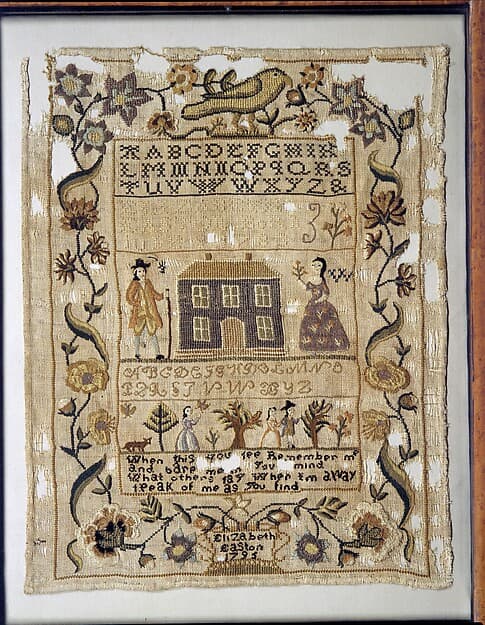 ABCDEFGHIK
LMNOPQRS
TUVWXYZ&
3
ABCDEFGHIKLMNO
PQRSTUVWXYZ
When this you see Remember me
and bare me in you mind
What others say When Im aWay
speak of me as you find
Elizabeth
Easton
1795